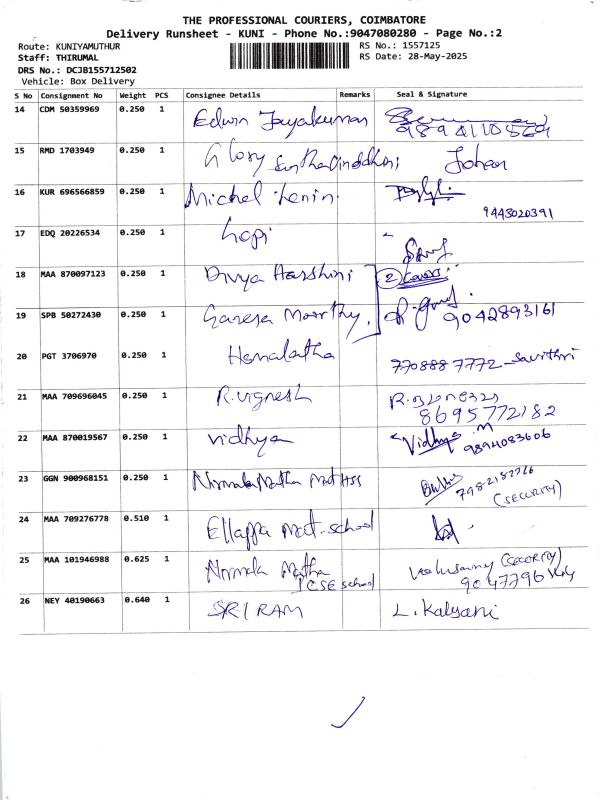 THE PROFESSIONAL COURIERS, COIMBATORE
Delivery Runsheet - KUNI - Phone No.:9047080280 - Page No.:2
Route: KUNIYAMUTHUR
RS No.: 1557125
Staff: THIRUMAL
RS Date: 28-May-2025
DRS No.: DCJB155712502
Vehicle: Box Delivery
S No Consignment No Weight PCS Consignee Details Remarks Seal & Signature
14 CDM 50359969 0.250 1 Edwin Jayakumar
15 RMD 1703949 0.250 1 Glory
16 KUR 696566859 0.250 1 Michel Lenin.
9443020391
17 EDQ 20226534 0.250 1 Gopi
18 MAA 870097123 0.250 1 Divya Harshini 2 Covers
19 SPB 50272430 0.250 1 Ganesa Moorthy, 9042893161
20 PGT 3706970 0.250 1 Hemalatha 7708887772 - Savithri
21 MAA 709696045 0.250 1 R.vignesh
8695772182
22 MAA 870019567 0.250 1 vidhya Vidhya M
9894083606
23 GGN 900968151 0.250 1 Nirmala Matha Mat HSS
(SECURITY)
24 MAA 709276778 0.510 1 Ellappa mat-school
25 MAA 101946988 0.625 1 Nirmala Matha (SECURITY)
ICSE school
26 NEY 40190663 0.640 1 SRI RAM L. Kalyani